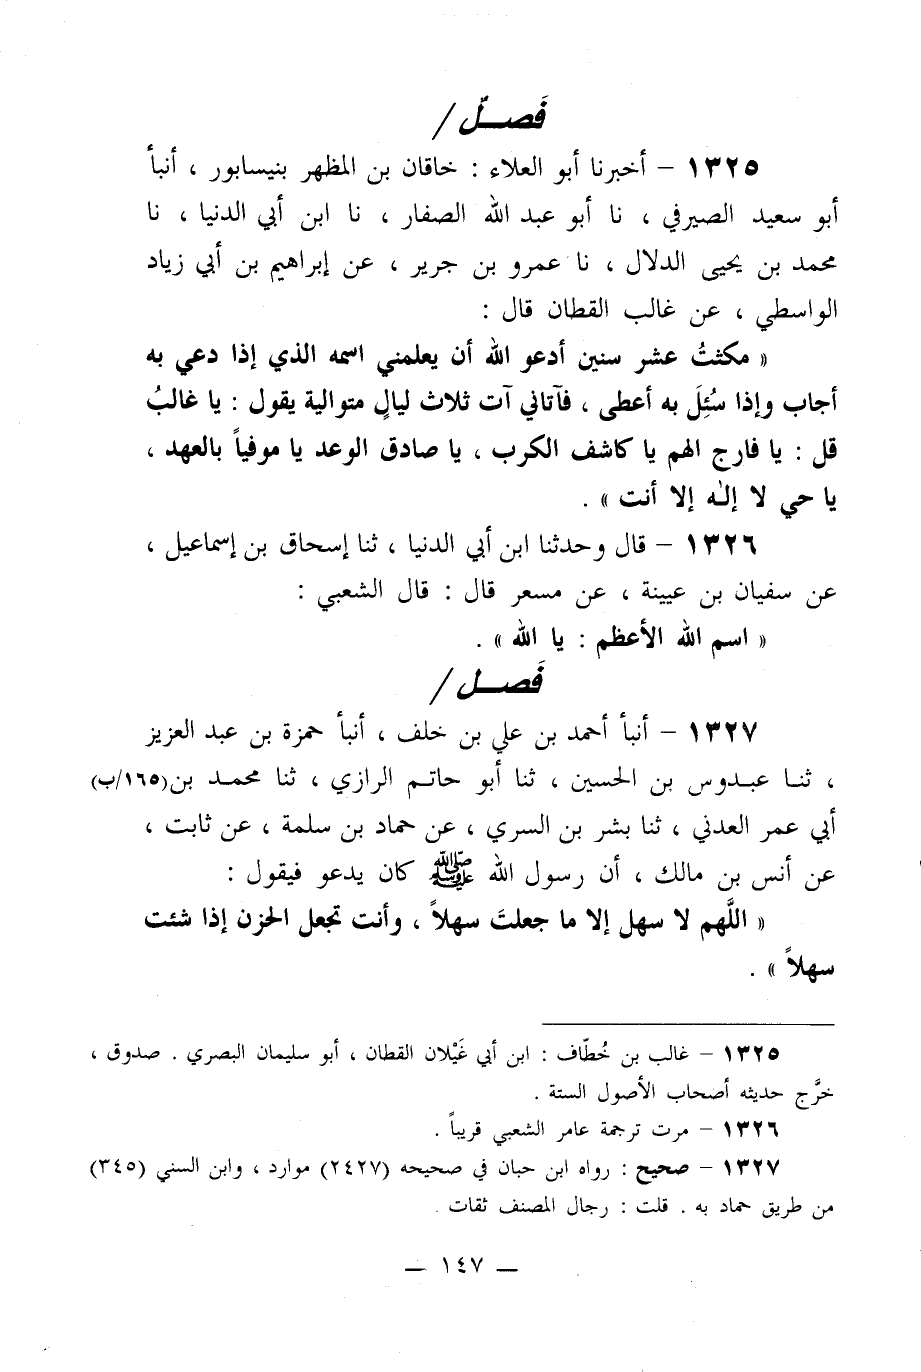 فَصـــلّ /
١٣٢٥ – أخبرنا أبو العلاء : خاقان بن المظهر بنيسابور ، أنبأ
أبو سعيد الصيرفي ، نا أبو عبد الله الصفار ، نا ابن أبي الدنيا ، نا
محمد بن يحيى الدلال ، نا عمرو بن جرير ، عن إبراهيم بن أبي زياد
الواسطي ، عن غالب القطان قال :
« مكثتُ عشر سنين أدعو الله أن يعلمني اسمه الذي إذا دعي به
أجاب وإذا سُئِلَ به أعطى ، فآتاني آت ثلاث ليالٍ متوالية يقول : يا غالبُ
قل : يا فارج الهم يا كاشف الكرب ، يا صادق الوعد يا موفياً بالعهد ،
يا حي لا إلٰه إلا أنت » .
١٣٢٦ – قال وحدثنا ابن أبي الدنيا ، ثنا إسحاق بن إسماعيل ،
عن سفيان بن عيينة ، عن مسعر قال : قال الشعبي :
« اسم الله الأعظم : يا الله » .
فَصـــل /
١٣٢٧ – أنبأ أحمد بن علي بن خلف ، أنبأ حمزة بن عبد العزيز
، ثنـا عبـدوس بن الحسين ، ثنا أبو حاتـم الرازي ، ثنا محمـد بن (١٦٥/ب)
أبي عمر العدني ، ثنا بشر بن السري ، عن حماد بن سلمة ، عن ثابت ،
عن أنس بن مالك ، أن رسول الله ﷺ كان يدعو فيقول :
« اللَّهم لا سهل إلا ما جعلتَ سهلاً ، وأنت تجعل الحزن إذا شئت
سهلاً » .
١٣٢٥ – غالب بن خُطَّاف : ابن أبي غَيْلان القطان ، أبو سليمان البصري . صدوق ،
خرَّج حديثه أصحاب الأصول الستة .
١٣٢٦ – مرت ترجمة عامر الشعبي قريباً .
١٣٢٧ – صحيح : رواه ابن حبان في صحيحه (٢٤٢٧) موارد ، وابن السني (٣٤٥)
من طريق حماد به . قلت : رجال المصنف ثقات .
– ١٤٧ –